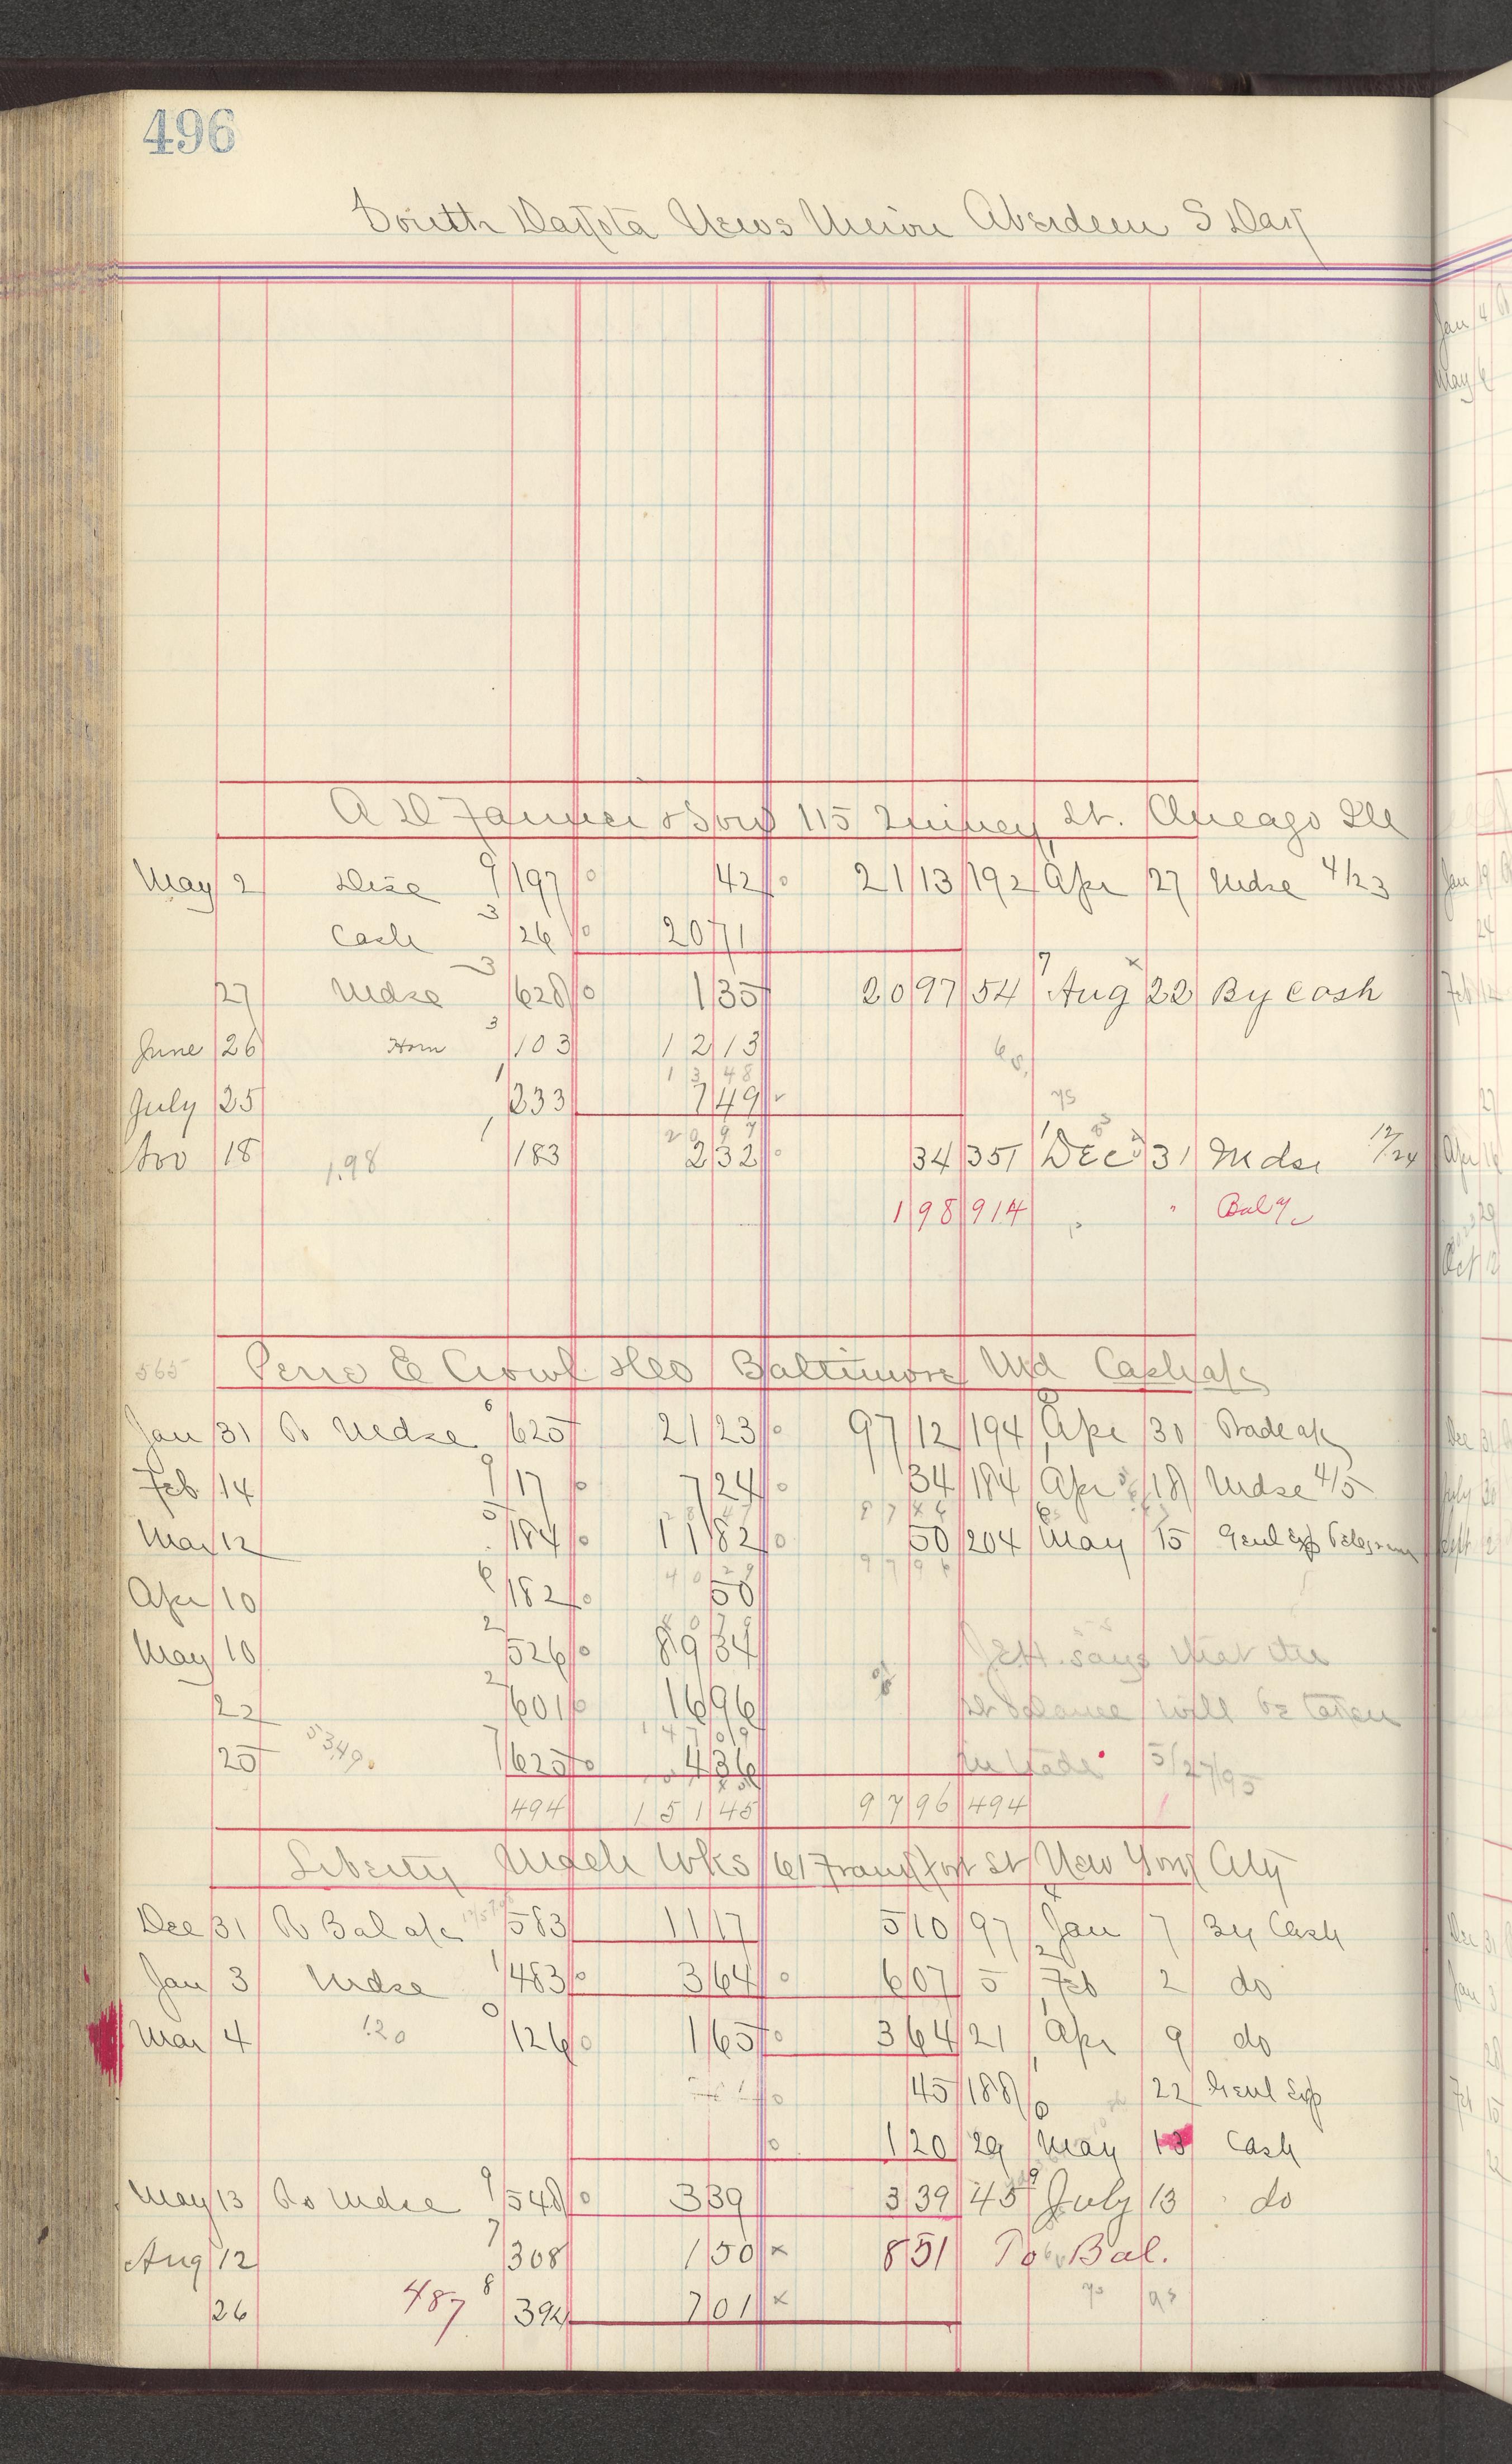 496
South Dakota News Union Aberdeen S Dak
A D Farmer & Son 115 Quincy St. Chicago Ill
May 2 Disc 9 197 42 21 13 192 Apr 27 Mdse 4/23
Cash 3 26 20 71
27 Mdse 3 628 1 35 20 97 54 7 Aug 22 By Cash
June 26 Hom 3 103 12 13
13 48
July 25 1 233 7 49
20 97
Nov 18 1.98 1 183 2 32 34 351 1 Dec 31 Mdse 12/24
1 98 914 " " Bal
565 Baltimore Md Cash a/c
Jan 31 To Mdse 6 625 21 23 97 12 194 Apr 30 Trade a/c
Feb 14 9 17 7 24 34 184 Apr 18 Mdse 4/5
Mar 12 5 184 11 82 50 204 May 15 Genl Exp Telegram
97 96
Apr 10 6 182 50
May 10 2 526 89 34 J.E.H. says that the
22 2 601 16 96 balance will be taken
147 09
25 53.49 7 625 4 36 in trade 5/27/95
494 151 45 97 96 494
Liberty Mach Wks 61 Frankfort St New York City
Dec 31 To Bal a/c 583 11 17 5 10 97 4 Jan 7 By Cash
Jan 3 Mdse 1 483 3 64 6 07 5 2 Feb 2 do
Mar 4 1.20 0 126 1 65 3 64 21 1 Apr 9 do
45 188 22 Genl Exp
1 20 29 May 13 Cash
May 13 To Mdse 9 548 3 39 3 39 45 9 July 13 do
Aug 12 7 308 1 50 x 8 51 To Bal.
26 487 8 394 7 01 x